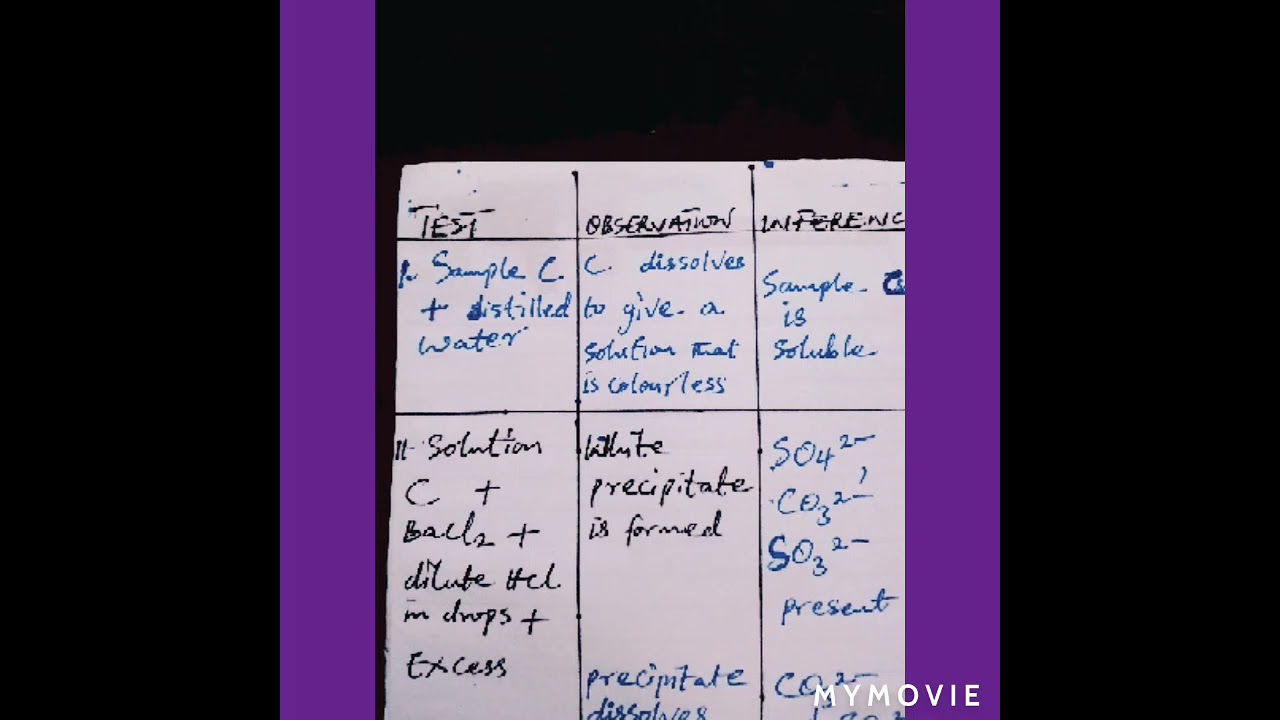 TEST
OBSERVATION
INFERENC
I. Sample C.
+ distilled
water
C. dissolves
to give a
solution that
is colourless
Sample C
is
soluble
II. Solution
C +
BaCl2 +
dilute HCl
in drops +
Excess
White
precipitate
is formed
SO4²⁻,
CO3²⁻
SO3²⁻
present
precipitate
dissolves
CO3²⁻
MYMOVIE